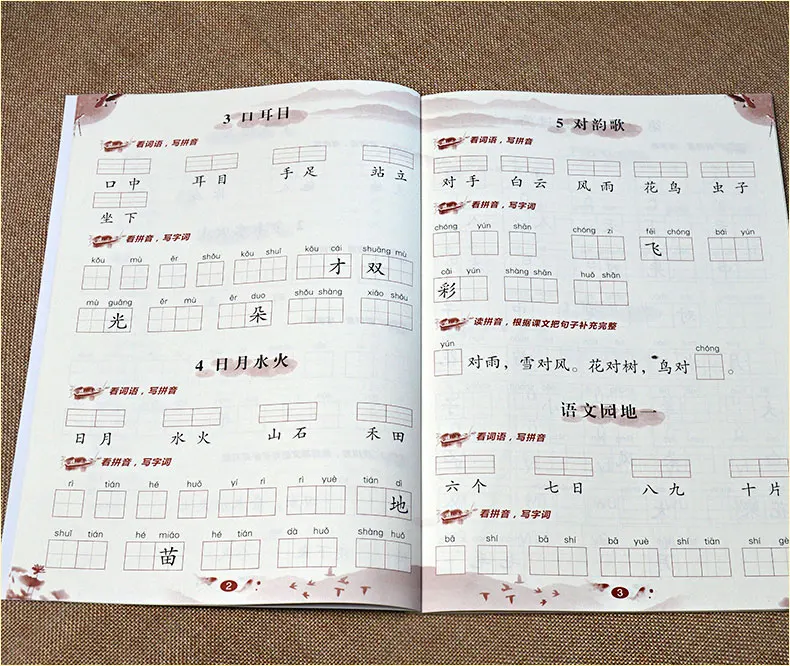 3 口耳目
看词语，写拼音
口中 耳目 手足 站立
坐下
看拼音，写字词
kǒu mù ěr shǒu kǒu shuǐ kǒu cái shuāng mù
才 双
mù guāng ěr mù ěr duo shǒu shàng xiǎo shǒu
光 朵
4 日月水火
看词语，写拼音
日月 水火 山石 禾田
看拼音，写字词
rì tián hé huǒ yí rì rì yuè tián dì
地
shuǐ tián hé miáo hé tián dà huǒ shàng huǒ
苗
2
5 对韵歌
看词语，写拼音
对手 白云 风雨 花鸟 虫子
看拼音，写字词
chóng yún shān chóng zi fēi chóng bái yún
飞
cǎi yún shàng shān huǒ shān
彩
读拼音，根据课文把句子补充完整
yún chóng
对雨，雪对风。花对树，鸟对 。
语文园地一
看词语，写拼音
六个 七日 八九 十片
看拼音，写字词
bā shí bā shí bā yuè shí tiān shí gè
3